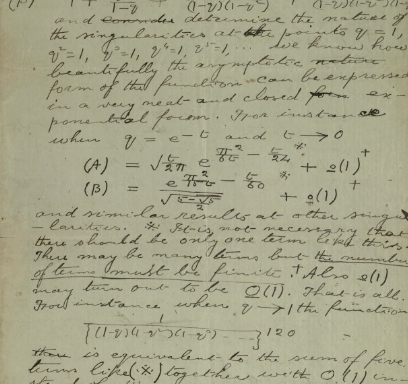 (A) 1 + q/(1-q) (1-q)(1-q²) (1-q)(1-q²)
and consider determine the nature of
the singularities at the points q = 1,
q² = 1, q³ = 1, q⁴ = 1, q⁵ = 1, ... we know how
beautifully the asymptotic nature
form of the function can be expressed
in a very neat and closed form ex-
ponential form. For instance
when q = e^{-t} and t → 0
(A) = √(t/2π) e^{π²/6t - t/24} * + o(1)†
(B) = e^{π²/15t - t/60} / √((5-√5)/2) + o(1)†
and similar results at other singu-
larities. * It is not necessary that
there should be only one term like this.
There may be many terms but the number
of terms must be finite. † Also o(1)
may turn out to be O(1). That is all.
For instance when q → 1 the function
1/{(1-q)(1-q²)(1-q³)...}^120
there is equivalent to the sum of five
terms like (*) together with O(1) in-